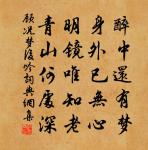 醉中還有夢
身外已無心
明鏡唯知老
青山何處深
顧況夢後吟詞典網集